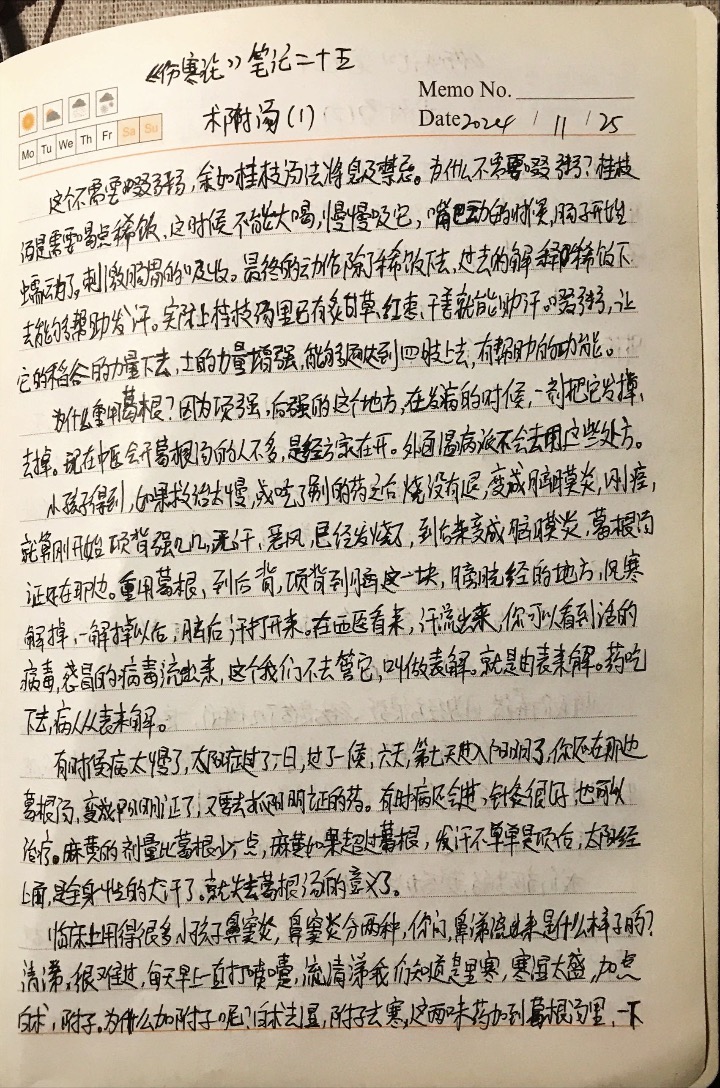 《伤寒论》笔记二十五
Memo No.
Mo Tu We Th Fr Sa Su
术附汤(1)
Date 2024 / 11 / 25
这个不需要啜粥,余如桂枝汤法将息及禁忌。为什么不需要啜粥?桂枝
汤是需要喝点稀饭,这时候不能大喝,慢慢吸它,嘴巴动的时候,肠子开始
蠕动了,刺激肠胃的吸收。最终的动作除了稀饭下去,过去的解释即稀饭下
去能够帮助发汗。实际上桂枝汤里已有炙甘草、红枣、干姜就能助汗。啜粥,让
它的稻谷的力量下去,土的力量增强,能够通达到四肢上去,有帮助的功能。
为什么重用葛根?因为项强,后强的这个地方,在发病的时候,一剂把它发掉、
去掉。现在中医会开葛根汤的人不多,是经方家在开。外面温病派不会去用这些处方。
小孩子得到,如果救治太慢,或吃了别的药之后烧没有退,变成脑膜炎,刚痉,
就算刚开始项背强几几,无汗、恶风,已经发烧了,到后来变成脑膜炎,葛根汤
证还在那边。重用葛根,到后背,项背到脑这一块,膀胱经的地方,风寒
解掉,一解掉以后,脑后汗打开来。在西医看来,汗流出来,你可以看到活的
病毒,感冒的病毒流出来,这个我们不去管它,叫做表解。就是由表来解。药吃
下去,病人从表来解。
有时候病太慢了,太阳症过了六日,过了一候,六天,第七天进入阳明了,你还在那边
葛根汤,变成阳明证了,又要去抓阳明证的药。有时病只会进,针灸很好,也可以
治疗。麻黄的剂量比葛根少一点,麻黄如果超过葛根,发汗不单单是项后,太阳经
上面,是全身性的大汗了。就失去葛根汤的意义了。
临床上用得很多,小孩子鼻窦炎,鼻窦炎分两种,你问,鼻涕流出来是什么样子的?
清涕,很难过,每天早上一直打喷嚏,流清涕我们知道是里寒,寒湿太盛,加点
白术,附子。为什么加附子呢?白术去湿,附子去寒,这两味药加到葛根汤里,一下